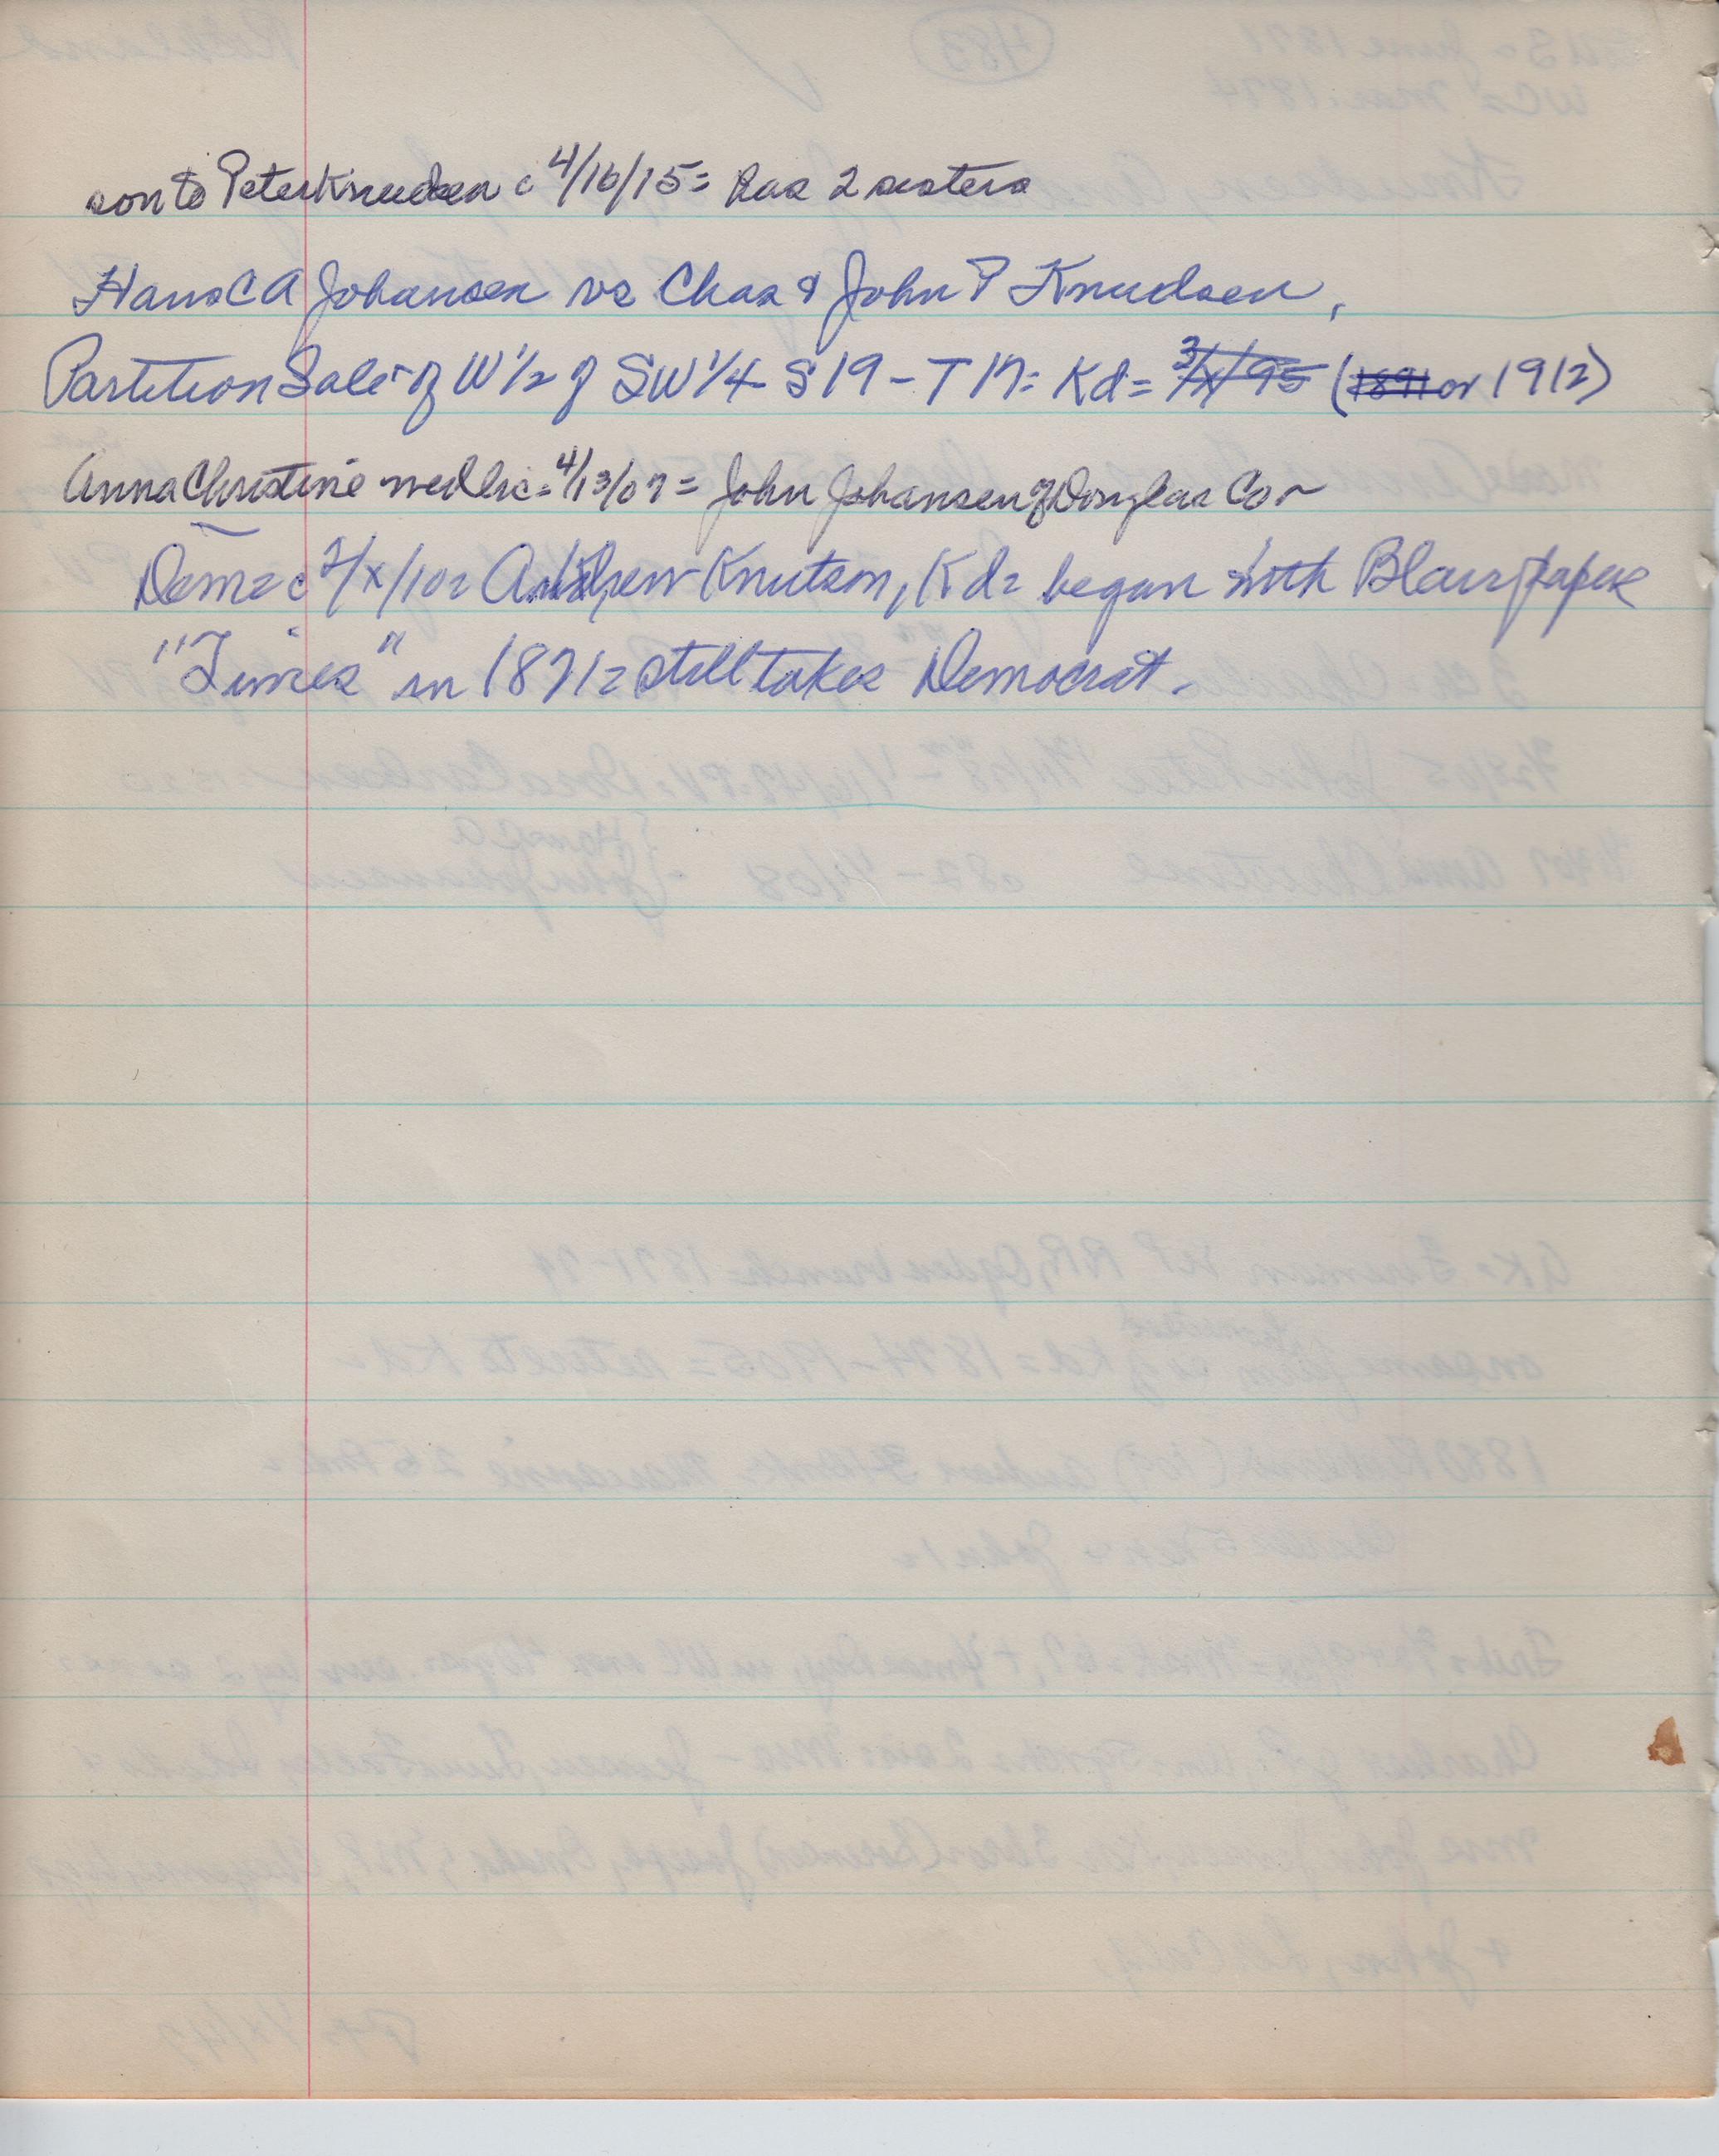 son to Peter Knudsen c 4/16/15= has 2 sisters
Hans C A Johansen vs Chas & John P Knudsen,
Partition Sale of W 1/2 of SW 1/4 S 19 - T 17= Kd= 3/x/95 (1891 or 1912)
Anna Christine wed lic= 4/13/07= John Johansen of Douglas Co-
Dem= c 2/x/10= Andrew Knutson, Kd= began with Blair paper
"Times" in 1871= still takes Democrat-